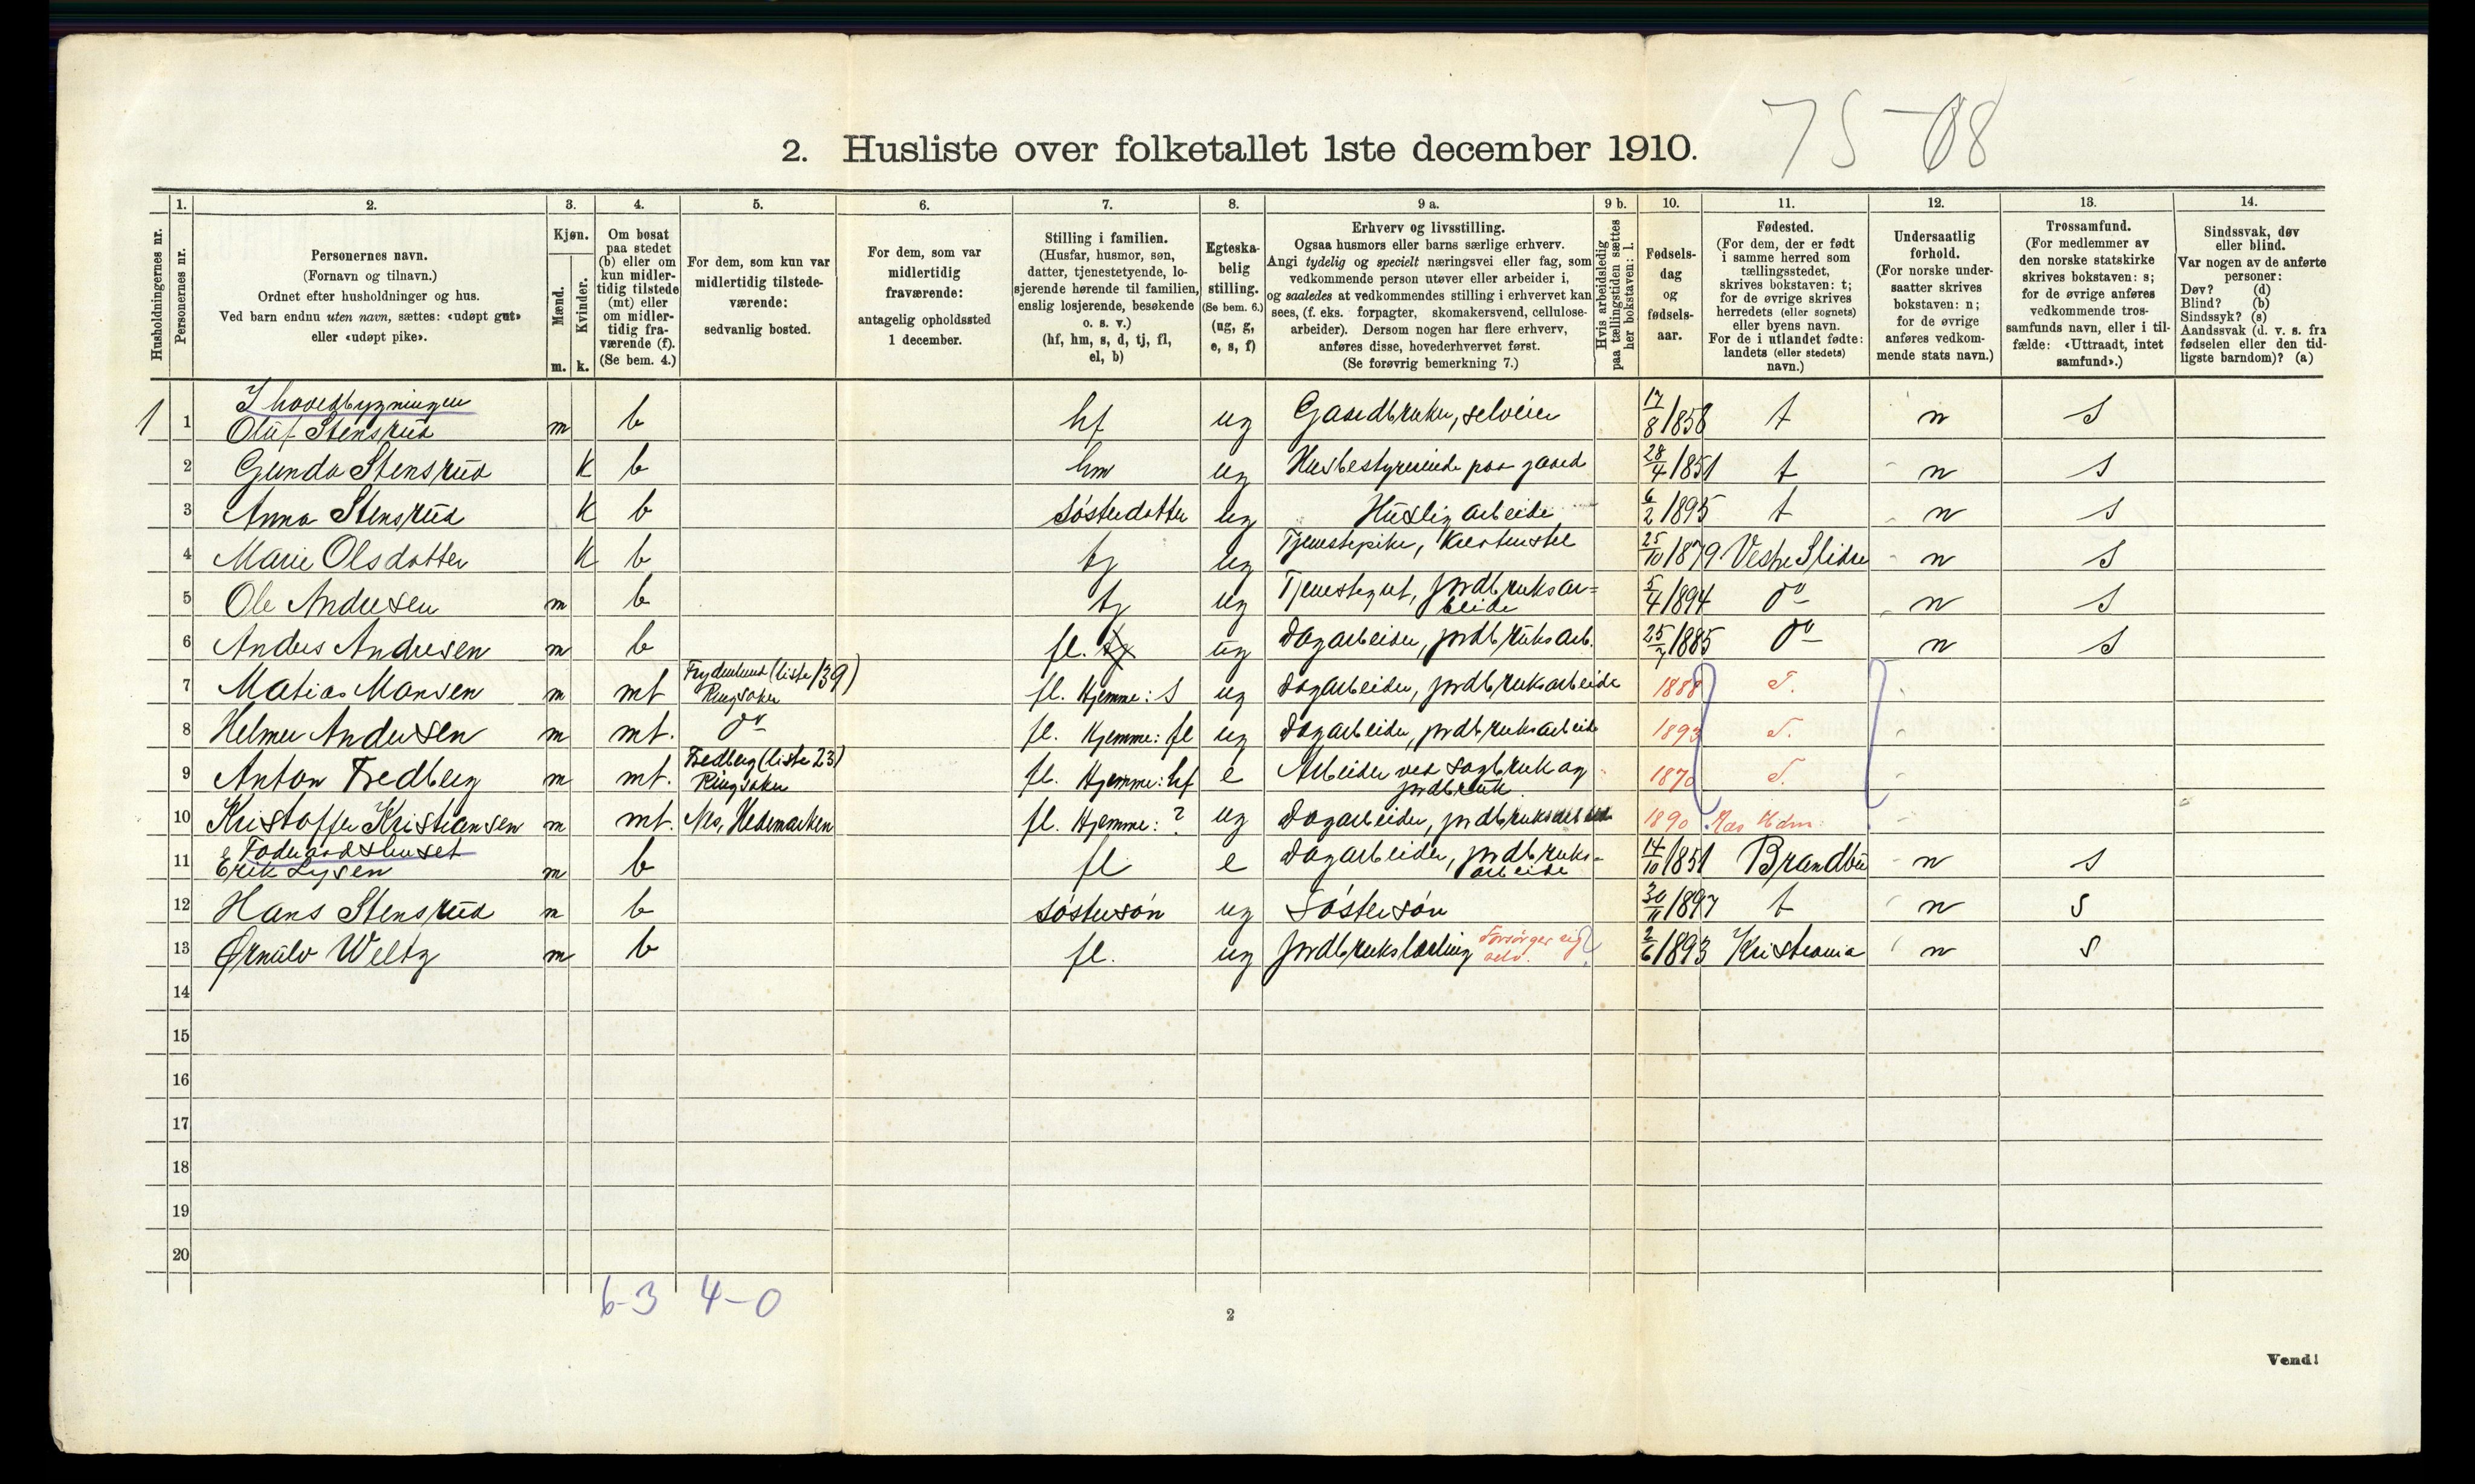 75-08
2. Husliste over folketallet 1ste december 1910.
Husholdningernes nr.
1.
Personernes nr.
2.
Personernes navn.
(Fornavn og tilnavn.)
Ordnet efter husholdninger og hus.
Ved barn endnu uten navn, sættes: «udøpt gut»
eller «udøpt pike».
3.
Kjøn.
Mænd.
m.
Kvinder.
k.
4.
Om bosat
paa stedet
(b) eller om
kun midler-
tidig tilstede
(mt) eller
om midler-
tidig fra-
værende (f).
(Se bem. 4.)
5.
For dem, som kun var
midlertidig tilstede-
værende:
sedvanlig bosted.
6.
For dem, som var
midlertidig
fraværende:
antagelig opholdssted
1 december.
7.
Stilling i familien.
(Husfar, husmor, søn,
datter, tjenestetyende, lo-
sjerende hørende til familien,
enslig losjerende, besøkende
o. s. v.)
(hf, hm, s, d, tj, fl,
el, b)
8.
Egteska-
belig
stilling.
(Se bem. 6.)
(ug, g,
e, s, f)
9 a.
Erhverv og livsstilling.
Ogsaa husmors eller barns særlige erhverv.
Angi tydelig og specielt næringsvei eller fag, som
vedkommende person utøver eller arbeider i,
og saaledes at vedkommendes stilling i erhvervet kan
sees, (f. eks. forpagter, skomakersvend, cellulose-
arbeider). Dersom nogen har flere erhverv,
anføres disse, hovederhvervet først.
(Se forøvrig bemerkning 7.)
9 b.
Hvis arbeidsledig
paa tællingstiden sættes
her bokstaven: l.
10.
Fødsels-
dag
og
fødsels-
aar.
11.
Fødested.
(For dem, der er født
i samme herred som
tællingsstedet,
skrives bokstaven: t;
for de øvrige skrives
herredets (eller sognets)
eller byens navn.
For de i utlandet fødte:
landets (eller stedets)
navn.)
12.
Undersaatlig
forhold.
(For norske under-
saatter skrives
bokstaven: n;
for de øvrige
anføres vedkom-
mende stats navn.)
13.
Trossamfund.
(For medlemmer av
den norske statskirke
skrives bokstaven: s;
for de øvrige anføres
vedkommende tros-
samfunds navn, eller i til-
fælde: «Uttraadt, intet
samfund».)
14.
Sindssvak, døv
eller blind.
Var nogen av de anførte
personer:
Døv? (d)
Blind? (b)
Sindssyk? (s)
Aandssvak (d. v. s. fra
fødselen eller den tid-
ligste barndom)? (a)
I hovedbygningen
1 1 Oluf Stensrud m b hf ug Gardbruker, selveier 17/8 1858 t n S
2 Gunda Stensrud k b hm ug Husbestyrerinde paa gaard 28/4 1851 t n S
3 Anna Stensrud k b søsterdatter ug Huslig arbeide 6/2 1895 t n S
4 Marie Olsdatter k b tj ug Tjenestepike, Kreaturstel 25/10 1879 Vestre Slidre n S
5 Ole Andresen m b tj ug Tjenestegut, jordbruksar=
beide 5/4 1894 do n S
6 Anders Andresen m b fl. tj ug Dagarbeider, jordbruksarb. 25/7 1885 do n S
7 Matias Monsen m mt Frydenlund (liste 139)
Ringsaker fl. Hjemme: s ug dagarbeider, jordbruksarbeide 1888 T.
8 Helmer Andersen m mt. do fl. Hjemme: fl ug dagarbeider, jordbruksarbeide 1893 T.
9 Anton Fredberg m mt. Fredberg (liste 23)
Ringsaker fl. Hjemme: hf e Arbeider ved sagbruk og
jordbruk. 1870 T.
10 Kristoffer Kristiansen m mt. Nes, Hedemarken fl. Hjemme: ? ug Dagarbeider, jordbruksarbeide 1890 Næs Hdm.
Føderaadshuset
11 Erik Lysen m b fl e Dagarbeider, jordbruks-
arbeide 14/10 1851 Brandbu n s
12 Hans Stensrud m b søstersøn ug Søstersøn 30/11 1897 t n s
13 Ørnulv Weltz m b fl. ug Jordbrukslærling Forsørger sig
selv. 2/6 1893 Kristiania n s
14
15
16
17
18
19
20
6-3 4-0
2
Vend!